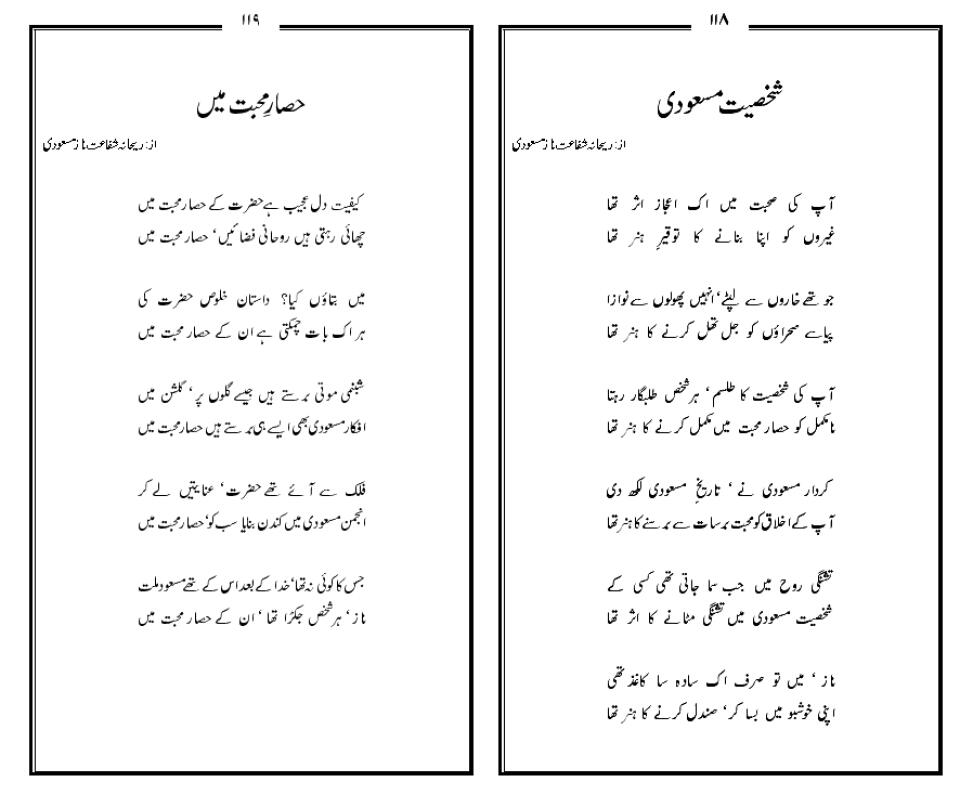 ۱۱۸
شخصیت مسعودی
از: ریحانہ شفاعت ناز مسعودی
آپ کی صحبت میں اک اعجاز اثر تھا
غیروں کو اپنا بنانے کا توقیرِ ہنر تھا
جو تھے خاروں سے لپٹے، انہیں پھولوں سے نوازا
پیاسے صحراؤں کو جل تھل کرنے کا ہنر تھا
آپ کی شخصیت کا طلسم، ہر شخص طلبگار رہتا
نامکمل کو حصار محبت میں مکمل کرنے کا ہنر تھا
کردار مسعودی نے، تاریخِ مسعودی لکھ دی
آپ کے اخلاق کو محبت برسات سے برسنے کا ہنر تھا
تشنگی روح میں جب سما جاتی تھی کسی کے
شخصیت مسعودی میں تشنگی مٹانے کا اثر تھا
ناز، میں تو صرف اک سادہ سا کاغذ تھی
اپنی خوشبو میں بسا کر، صندل کرنے کا ہنر تھا
۱۱۹
حصارِ محبت میں
از: ریحانہ شفاعت ناز مسعودی
کیفیت دل عجیب ہے حضرت کے حصار محبت میں
چھائی رہتی ہیں روحانی فضائیں، حصار محبت میں
میں بتاؤں کیا؟ داستان خلوص حضرت کی
ہر اک بات چمکتی ہے ان کے حصار محبت میں
شبنمی موتی برستے ہیں جیسے گلوں پر، گلشن میں
افکار مسعودی بھی ایسے ہی برستے ہیں حصار محبت میں
فلک سے آئے تھے حضرت، عنایتیں لے کر
انجمن مسعودی میں کندن بنایا سب کو، حصار محبت میں
جس کا کوئی نہ تھا، خدا کے بعد اس کے تھے مسعود ملت
ناز، ہر شخص جکڑا تھا، ان کے حصار محبت میں